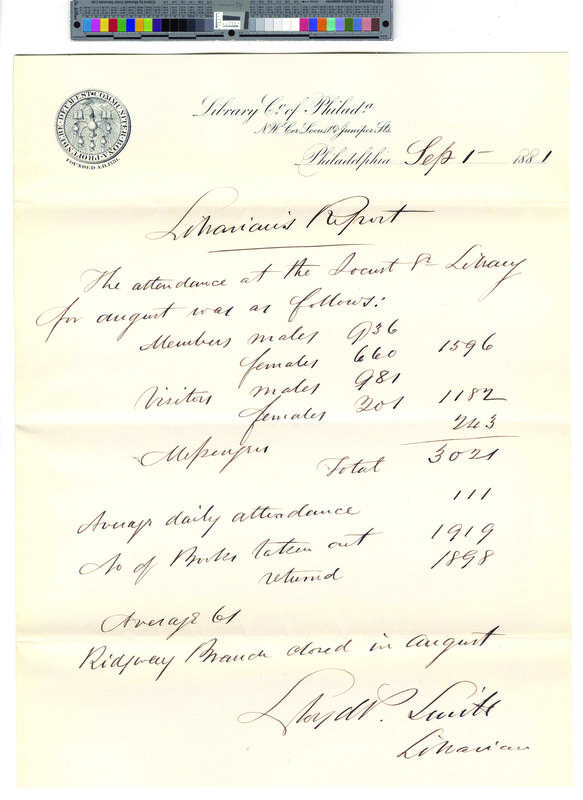 COMMUNITER BONA PROFUNDERE DEUM EST
FOUNDED A.D. 1731.
Library Co. of Philada.
N.W. Cor. Locust & Juniper Sts.
Philadelphia Sep 1 1881
Librarian's Report
The attendance at the Locust St Library
for august was as follows:
Members males 936
females 660 1596
Visitors males 981
females 201 1182
Messengers 243
Total 3021
Average daily attendance 111
No of Books taken out 1919
returned 1898
Average 61
Ridgway Branch closed in august
Lloyd P. Smith
Librarian